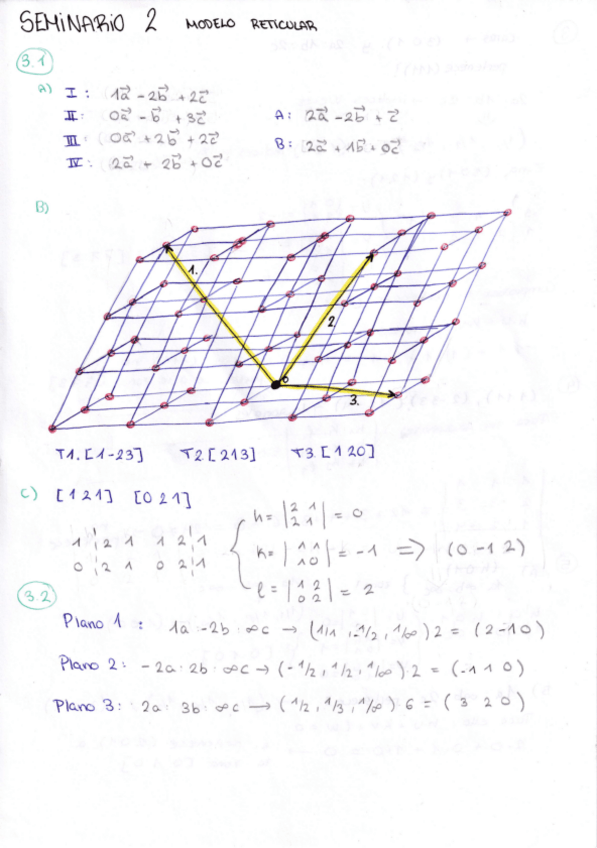 SEMINARIO 2 MODELO RETICULAR
3.1
A) I: 1a⃗ - 2b⃗ + 2c⃗
II: 0a⃗ - b⃗ + 3c⃗ A: 2a⃗ - 2b⃗ + c⃗
III: 0a⃗ + 2b⃗ + 2c⃗ B: 2a⃗ + 1b⃗ + 0c⃗
IV: 2a⃗ + 2b⃗ + 0c⃗
B)
1.
2.
0
3.
T1.[1-23] T2[213] T3.[120]
C) [121] [021]
1 ¦ 2 1 1 2 ¦ 1
0 ¦ 2 1 0 2 ¦ 1
h = |2 1 / 2 1| = 0
k = |1 1 / 1 0| = -1 ⇒ (0 -1 2)
l = |1 2 / 0 2| = 2
3.2
Plano 1: 1a · -2b · ∞c → (1/1, -1/2, 1/∞) 2 = (2-10)
Plano 2: -2a · 2b · ∞c → (-1/2, 1/2, 1/∞)·2 = (-1 1 0)
Plano 3: 2a · 3b · ∞c → (1/2, 1/3, 1/∞)·6 = (3 2 0)